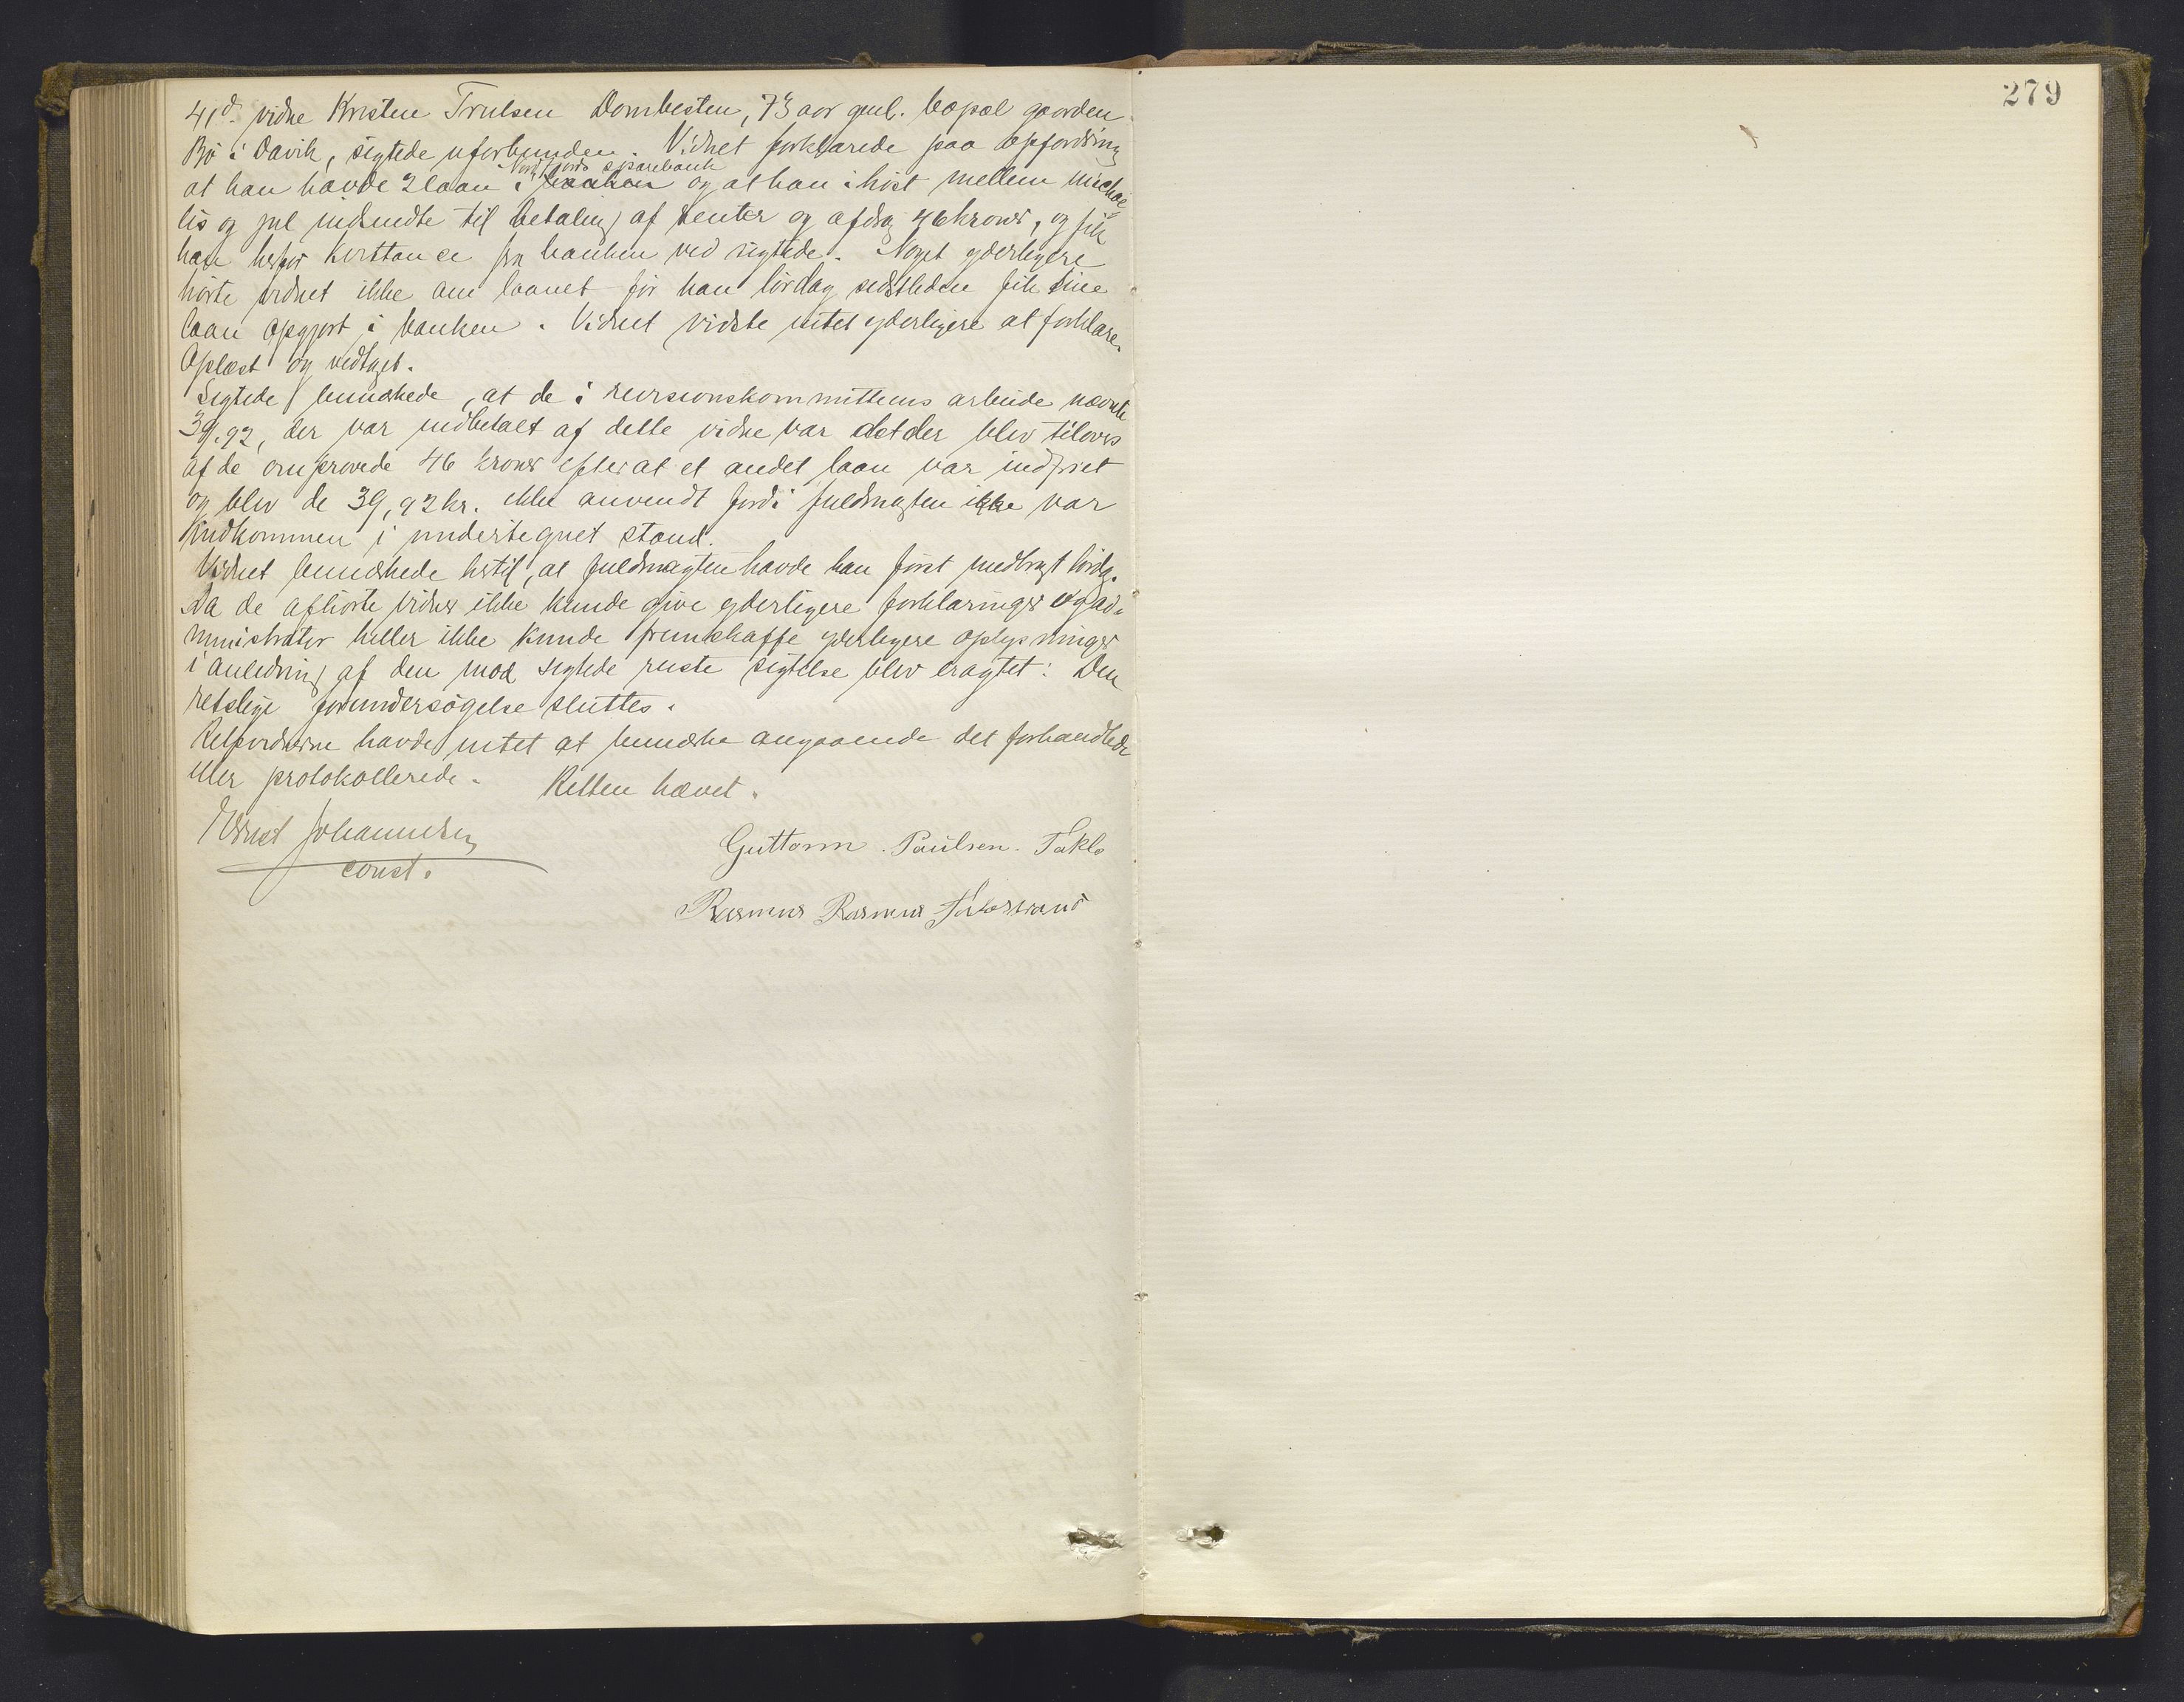 41d. vidne Kristen Trulsen Dombesten, 73 aar gml. bopæl gaarden
Bö i Davik, sigtede uforbunden. Vidnet forklarede paa opfordring
Nordfjords sparebank
at han havde 2 laan i banken og at han i höst mellem Michae
lis og jul indsendte til betaling af renter og afdrag 46 kroner, og fik
han herfor kvittance fra banken ved sigtede. Noget yderligere
hörte vidnet ikke om laanet för han lördag sidstleden fik sine
laan opgjort i banken. Vidnet vidste intet yderligere at forklare.
Oplæst og vedtaget.
Sigtede bemærkede, at de i revisionskommitteens arbeide nævnte
39,92, der var indbetalt af dette vidne var det der blev tilovers
af de omprovede 46 kroner efterat et andet laan var indfriet
og blev de 39,92 kr. ikke anvendt fordi fuldmagten ikke var
indkommen i undertegnet stand.
Vidnet bemærkede hertil, at fuldmagten havde han först medbragt lördag.
Da de afhörte vidner ikke kunde give yderligere forklaringer og ad-
ministrator heller ikke kunde fremskaffe yderligere oplysninger
i anledning af den mod sigtede reiste sigtelse blev eragtet: Den
retslige forundersögelse sluttes.
Retsvidnerne havde intet at bemærke angaaende det forhandlede
eller protokollerede. Retten hævet.
Ernst Johannesen
const.
Guttorm Paulsen Taklo
Rasmus Rasmus
279